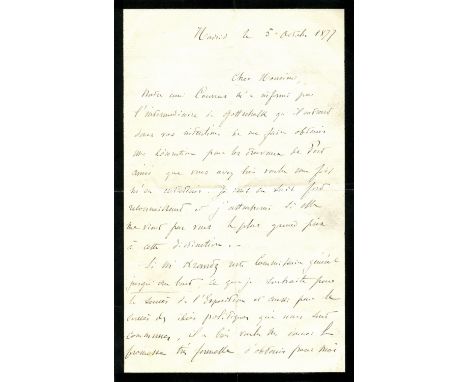 Madrid le 5 Octobre 1877
Cher Monsieur,
Notre ami m'a informé par
l'intermédiaire de Gottschalk qu'il entrait
dans vos intentions de me faire obtenir
une décoration pour les travaux de
que vous avez bien voulu
Je vous en serai fort
reconnaissant et j'attacherai si elle
me vient par vous le plus grand prix
à cette distinction. -
Si Mr Krantz reste Commissaire général
jusqu'au bout, ce que je souhaite pour
le succès de l'Exposition et aussi pour le
succès des idées politiques qui nous sont
communes, il a bien voulu me
promesse très formelle d'obtenir pour moi